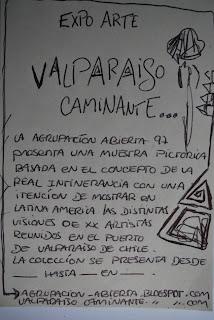 EXPO ARTE
VALPARAISO
CAMINANTE...
LA AGRUPACION ABIERTA 97
PRESENTA UNA MUESTRA PICTORIA
BASADA EN EL CONCEPTO DE LA
REAL INTINERANCIA CON UNA
ITENCION DE MOSTRAR EN
LATINA AMERIA LAS DISTINTAS
VISIONES DE XX ARTISTAS
REUNIDOS EN EL PUERTO
DE VALPARAISO DE CHILE.
LA COLECCION SE PRESENTA DESDE
___ HASTA ___ EN ___.
AGRUPACION-ABIERTA.BLOGSPOT.COM
VALPARAISO CAMINANTE. " " .COM